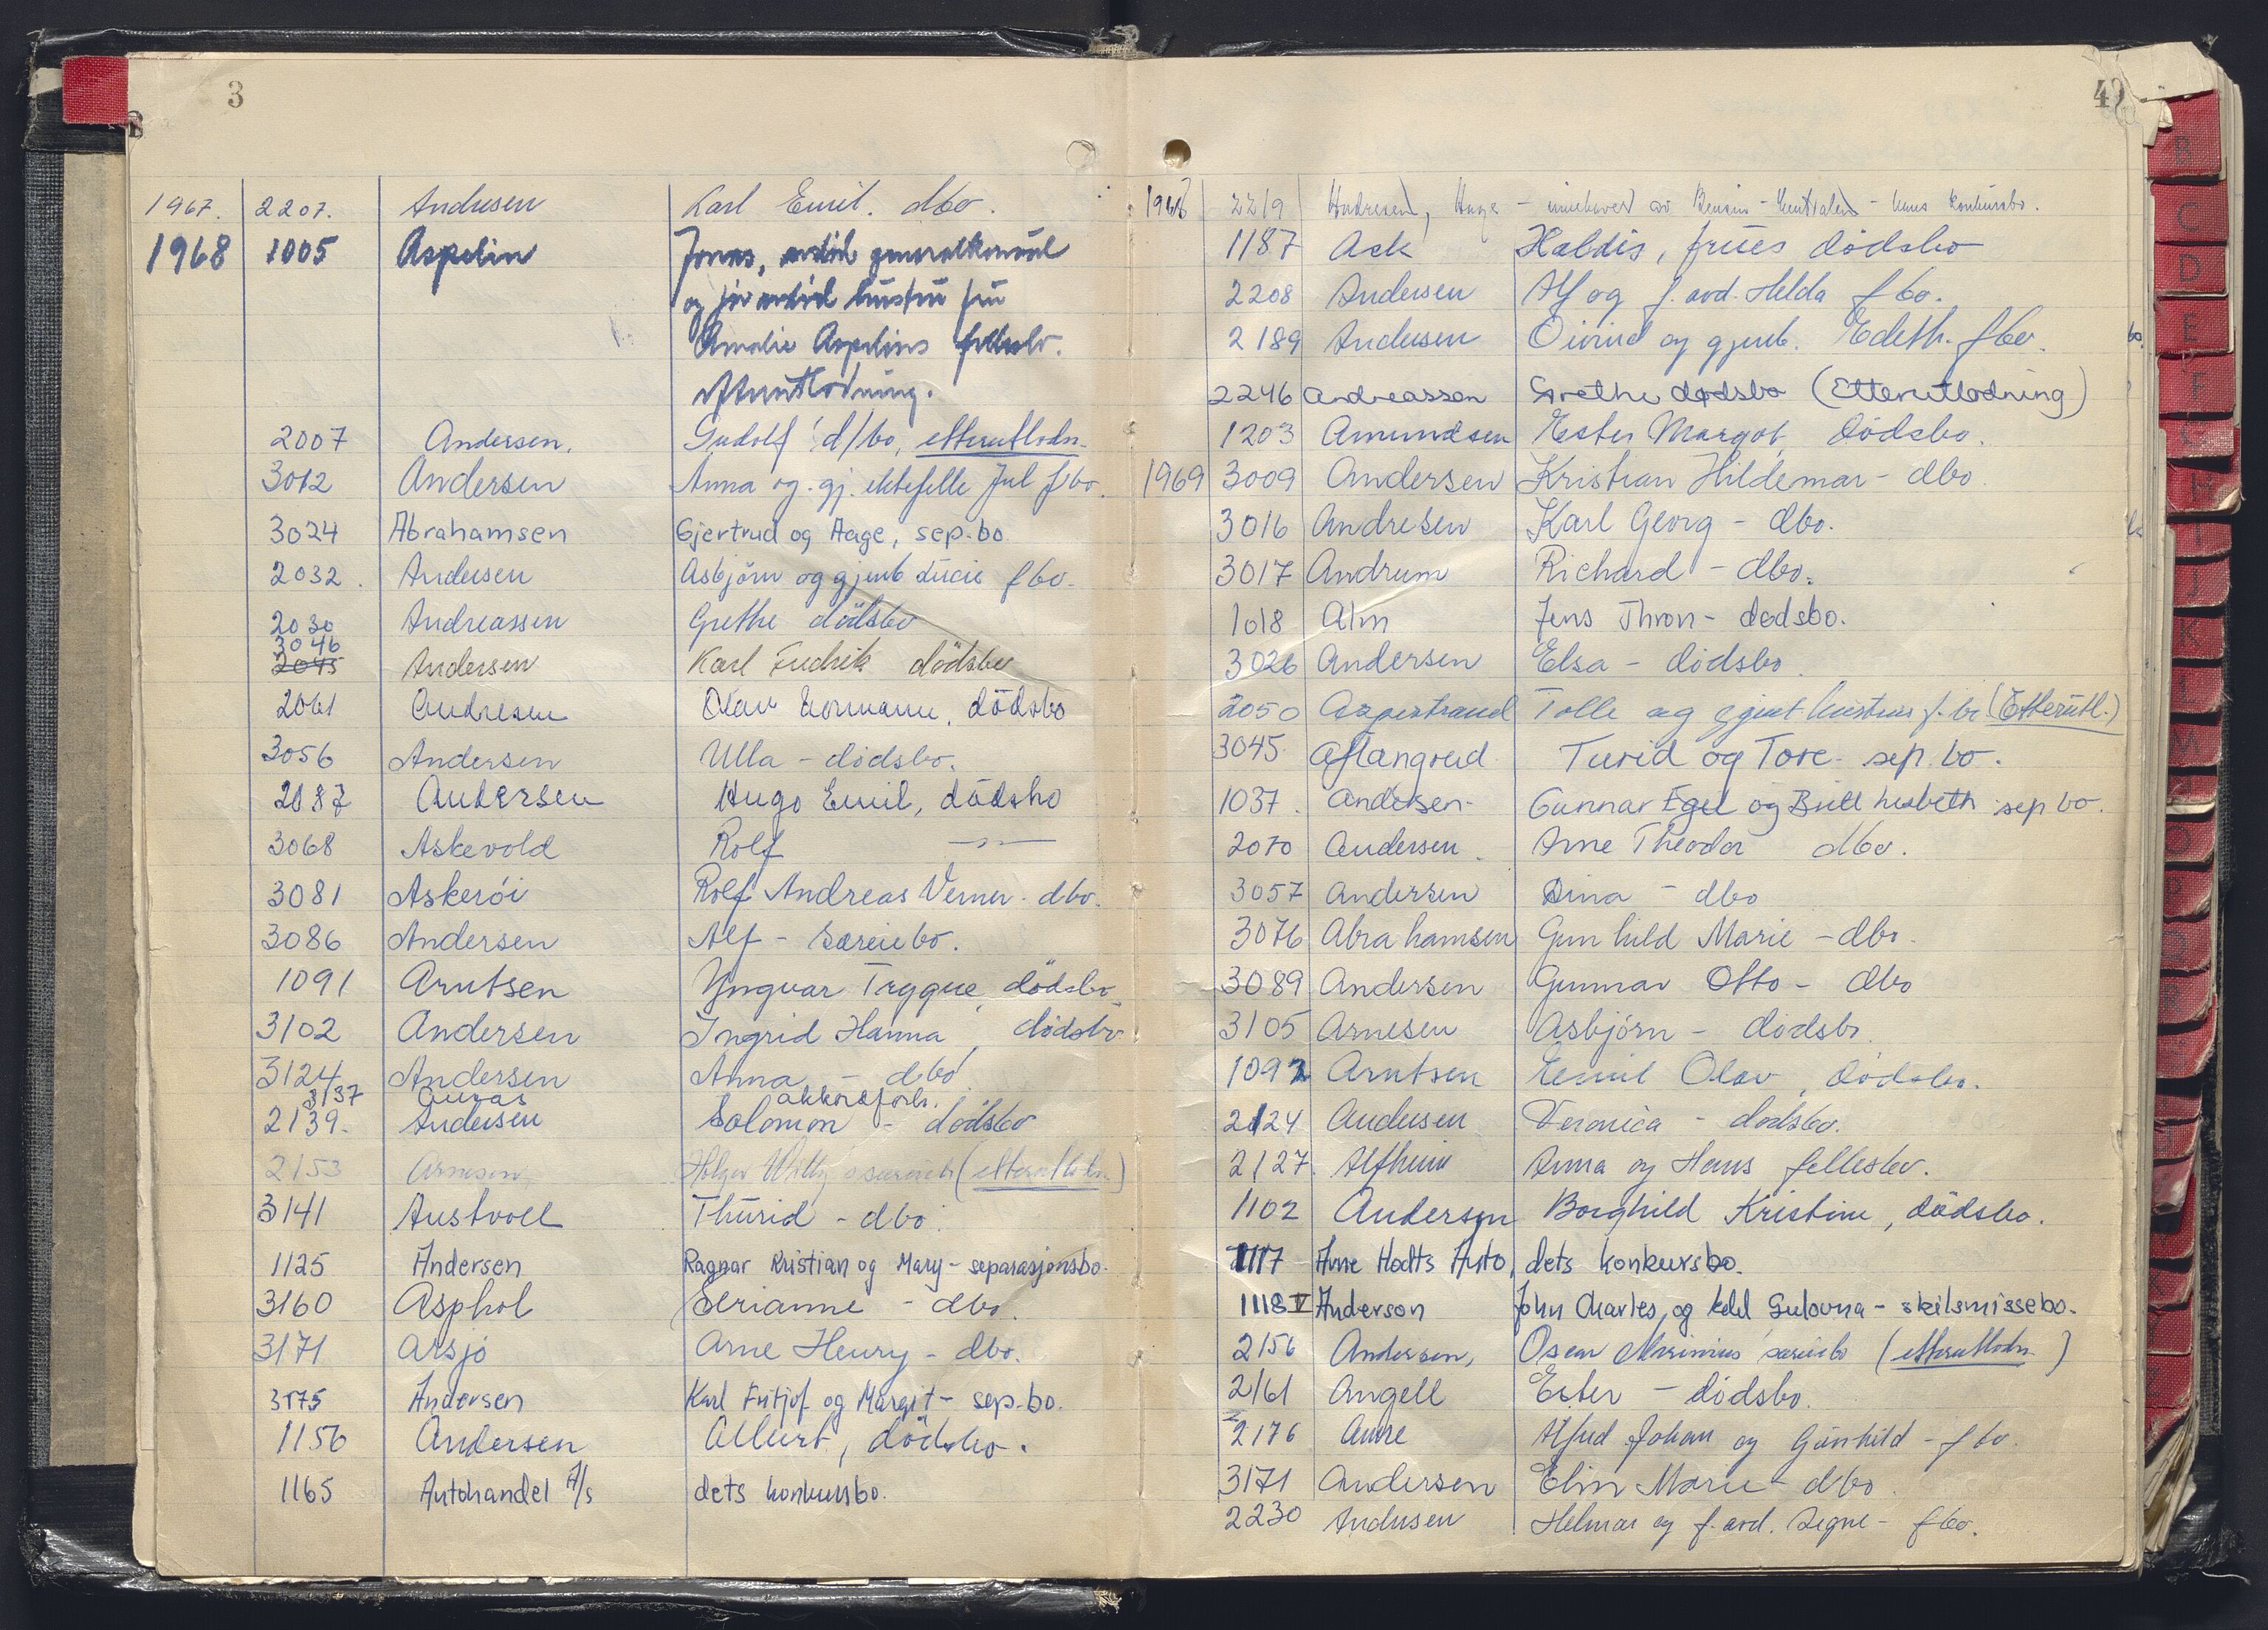 3
1967. 2207. Andresen Karl Emil. dbo.
1968 1005 Aspelin Jonas, avdød generalkonsul
og før avdød hustru fru
Amalie Aspelins fellesbo.
etterutlodning.
2007 Andersen, Gudolf d/bo, etterutlodn.
3012 Andersen Anna og gj. ektefelle Jul fbo.
3024 Abrahamsen Gjertrud og Aage, sep.bo
2032. Andersen Asbjörn og gjenb Lucie fbo.
2030 Andreassen Grethe dödsbo
3046
2045 Andersen Karl Fredrik dödsbo
2061 Andresen Olav Hermann, dödsbo
3056 Andersen Ulla - dödsbo.
2087 Andersen Hugo Emil, dödsbo
3068 Askevold Rolf —"—
3081 Askeröi Rolf Andreas Verner - dbo.
3086 Andersen Alf - Særeiebo.
1091 Arntsen Yngvar Trygve, dödsbo.
3102 Andersen Ingrid Hanna, dödsbo
3124 Andersen Anna - dbo
3137 akkordforh.
2139. Andersen Solomon - dödsbo
2153 Arnesen Holger Willy særeiebo (etterutlodn.)
3141 Austvoll Thurid - dbo.
1125 Andersen Ragnar Kristian og Mary - separasjonsbo.
3160 Asphol Serianne - dbo.
3171 Arsjö Arne Henry - dbo.
3175 Andersen Karl Fritjof og Margit - sep.bo.
1156 Andersen Albert, dödsbo.
1165 Autohandel A/s dets konkursbo.
42
1968 2219 Andresen, Hage - innehaver av Bensin-Sentralen - hans konkursbo.
1187 Ask Haldis, frues dödsbo
2208 Andersen Alf og f. avd. Helda fbo.
2189 Andersen Öivind og gjenb. Edeth. fbo.
2246 Andreassen Grethe dødsbo (Etterutlodning)
1203 Amundsen Ester Margot, dödsbo.
1969 3009 Andersen Kristian Hildemar - dbo.
3016 Andresen Karl Georg - dbo.
3017 Andrum Richard - dbo.
1018 Alm Jens Thron - dødsbo.
3026 Andersen Elsa - dödsbo.
2050 Aspestrand Tolle og gjenl. hustrus f.bo (Etterutl.)
3045 Aflangrud Turid og Tore - sep.bo.
1037. Andersen - Gunnar Egil og Britt Lisbeth sep bo.
2070 Andersen. Arne Theodor dbo.
3057 Andersen Dina - dbo
3076 Abrahamsen Gunhild Marie - dbo.
3089 Andersen Gunnar Otto - dbo
3105 Arnesen Asbjörn - dödsbo.
1092 Arntsen Emil Olav, dödsbo.
2124 Andersen Veronica - dödsbo.
2127. Alfheim Anna og Hans fellesbo.
1102 Andersen Borghild Kristine, dödsbo.
1117 Arne Hodts Auto, dets konkursbo.
1118 V Anderson John Charles, og Kell Gulovna - skilsmissebo.
2156 Andersen, Oscar Marinius særeiebo (etterutlodn.)
2161 Angell Ester - dödsbo.
2176 Aure Alfred Johan og Gunhild - fbo.
3171 Andersen Elin Marie - dbo.
2230 Andersen Helmar og f. avd. Signe - fbo.
B
C
D
E
F
H
I
J
K
L
M
O
P